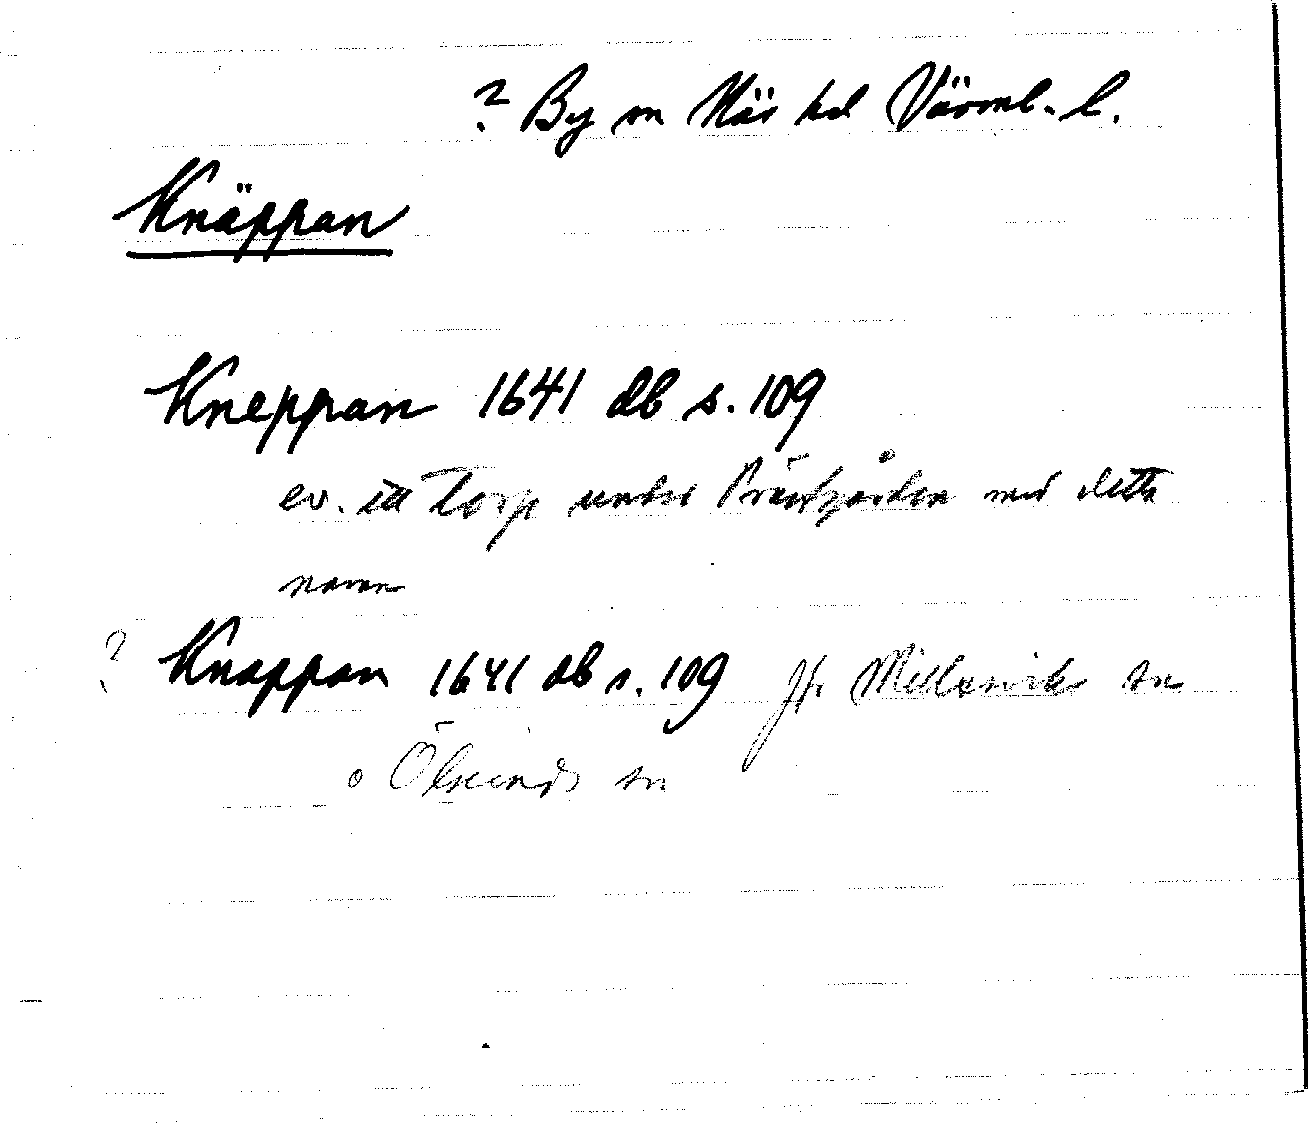 ? By sn Näs hd Värml. l.
Knäppan
Kneppan 1641 db s. 109
ev. ett torp under Prästgården med detta
namn
? Knappan 1641 db s. 109 Jfr Millesviks sn
o Ölseruds sn